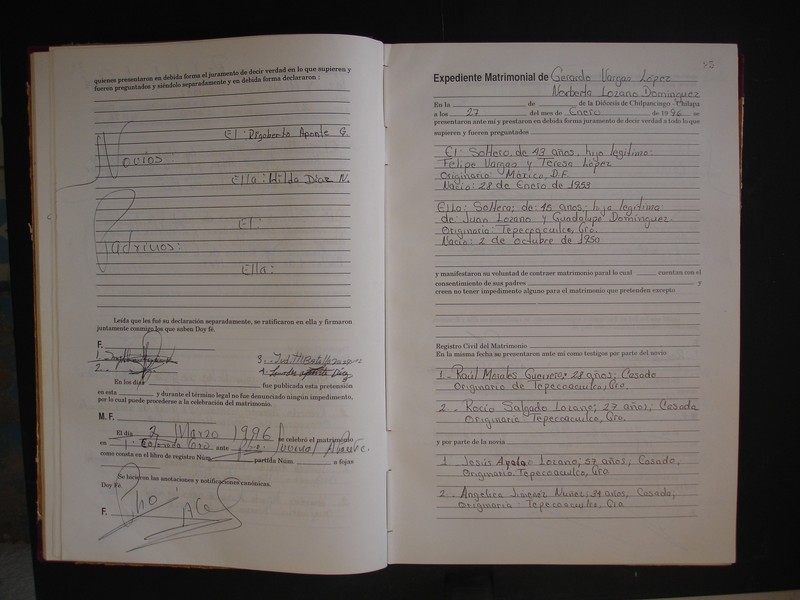 quienes presentaron en debida forma el juramento de decir verdad en lo que supieren y
fueren preguntados y siéndole separadamente y en debida forma declararon :
El: Rigoberto Aponte G.
Novios:
Ella: Hilda Díaz N.
El:
Padrinos:
Ella:
Leída que les fué su declaración separadamente, se ratificaron en ella y firmaron
juntamente conmigo los que saben Doy fé.
F.
1.
3.
2.
4. Díaz
En los días fue publicada esta pretención
en esta y durante el término legal no fue denunciado ningún impedimento,
por lo cual puede procederse a la celebración del matrimonio.
M. F.
El día 2 Marzo 1996 se celebró el matrimonio
en T. Colorada Gro ante Pbro. Juvenal
como consta en el libro de registro Núm. partida Núm. a fojas
Se hicieron las anotaciones y notificaciones canónicas.
Doy Fé.
F.
Expediente Matrimonial de Gerardo Vargas López
Norberta Lozano Domínguez
En la de de la Diócesis de Chilpancingo - Chilapa
a los 27 del mes de Enero de 1996 se
presentaron ante mí y prestaron en debida forma juramento de decir verdad a todo lo que
supieren y fueren preguntados
El: Soltero, de 43 años, hijo legítimo:
Felipe Vargas y Teresa López
Originario: México, D.F.
Nació: 28 de Enero de 1953
Ella: Soltera; de: 45 años; hija legítima
de: Juan Lozano y Guadalupe Domínguez.
Originaria: Tepecoacuilco, Gro.
Nació: 2 de octubre de 1950
y manifestaron su voluntad de contraer matrimonio paral lo cual cuentan con el
consentimiento de sus padres y
creen no tener impedimento alguno para el matrimonio que pretenden excepto
Registro Civil del Matrimonio
En la misma fecha se presentaron ante mí como testigos por parte del novio
1.- Raúl Morales Guerrero; 28 años; Casado
Originario de Tepecoacuilco, Gro.
2.- Rocío Salgado Lozano; 27 años; Casada
Originaria Tepecoacuilco, Gro.
y por parte de la novia
1. Jesús Ayala Lozano, 57 años; Casado,
Originario Tepecoacuilco, Gro
2.- Angelica Jiménez Nuñez; 34 años, Casada;
Originaria: Tepecoacuilco, Gro